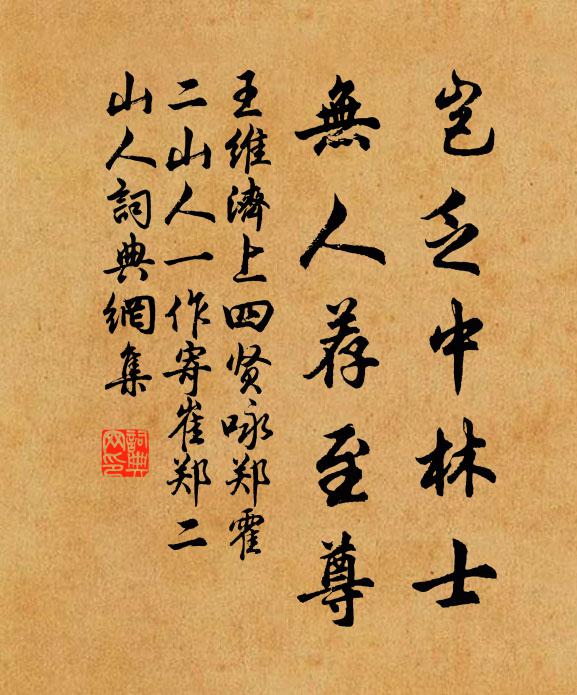 岂乏中林士
無人荐至尊
王维濟上四贤咏郑霍
二山人一作寄崔郑二
山人詞典網集
詞典
网印